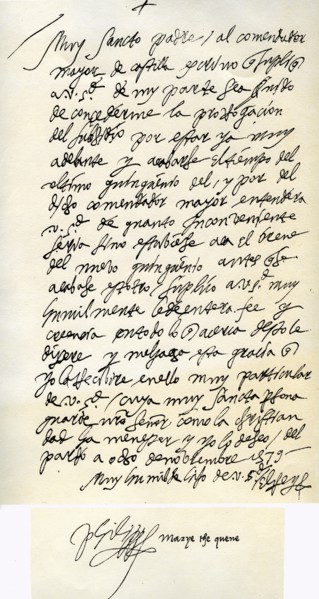 Muy Sancto padre / al comendador
mayor de castilla escrivo q supliq
a v. s.d de my parte sea servido
de concederme la prorrogacion
del subsidio por estar ya muy
adelante y acabarse el tiempo del
ultimo quinquenio del, y por del
dicho comendador mayor entendera
v. s.d de quanto inconveniente
seria sino estubiese aca el breve
del nuevo quinquenio antes que
acabase estotro, suplico a v. s.d muy
humilmente le de entera fee y
creencia en todo lo q acerca desto le
dixere y me haga esta gracia q
yo la recibire en ello muy particular
de v. s.d / cuya muy Sancta persona
guarde nro señor como la christian
dad ha menester y yo lo deseo / del
pardo a ocho de noviembre 1579
Muy humilde hijo de v. s.d
marye the quene